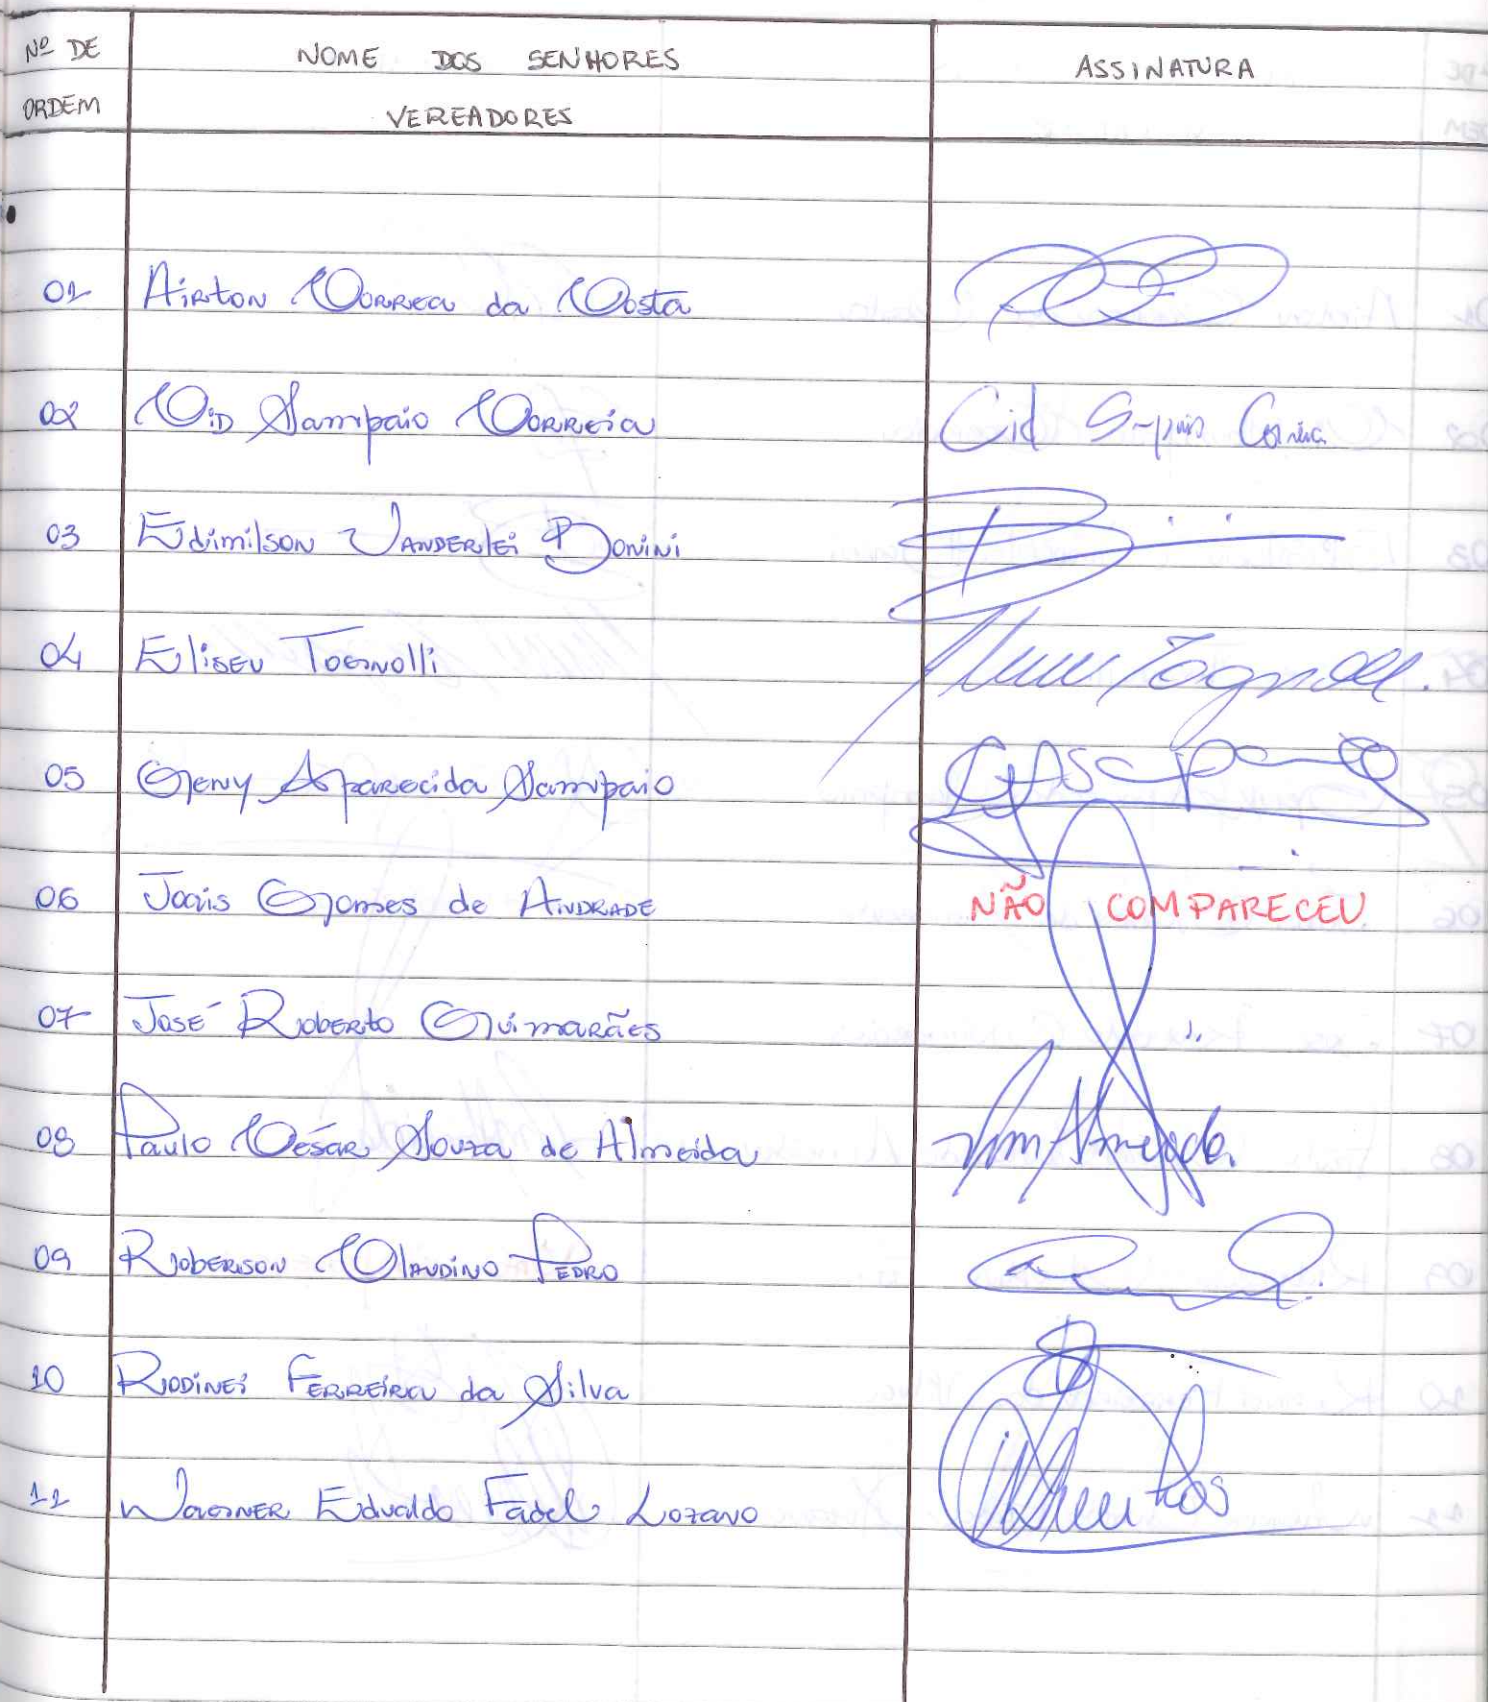 Nº DE NOME DOS SENHORES ASSINATURA
ORDEM VEREADORES
01 Airton Correa da Costa
02 Cid Sampaio Correia Cid Correia
03 Edimilson Vanderlei Bonini
04 Eliseu Tognolli Tognolli.
05 Geny Aparecida Sampaio
06 Joais Gomes de Andrade NÃO COMPARECEU
07 José Roberto Guimarães
08 Paulo César Souza de Almeida Almeida
09 Roberson Claudino Pedro
10 Rodinei Ferreira da Silva
11 Wagner Edvaldo Fadel Lozano